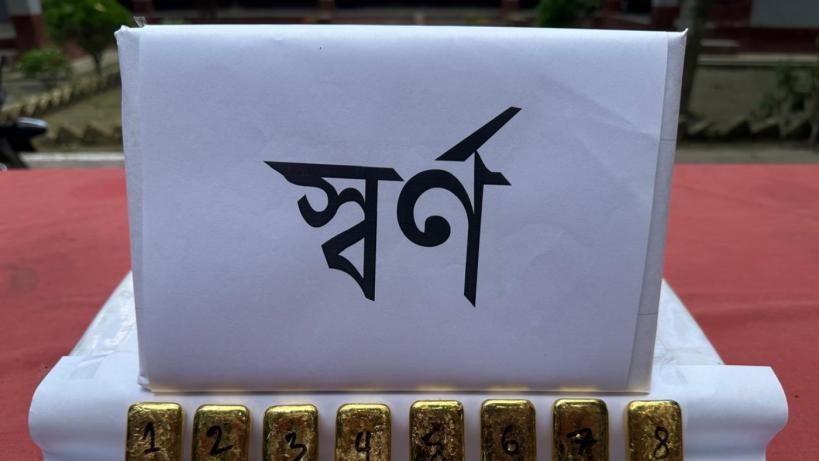 স্বর্ণ
1 2 3 4 5 6 7 8